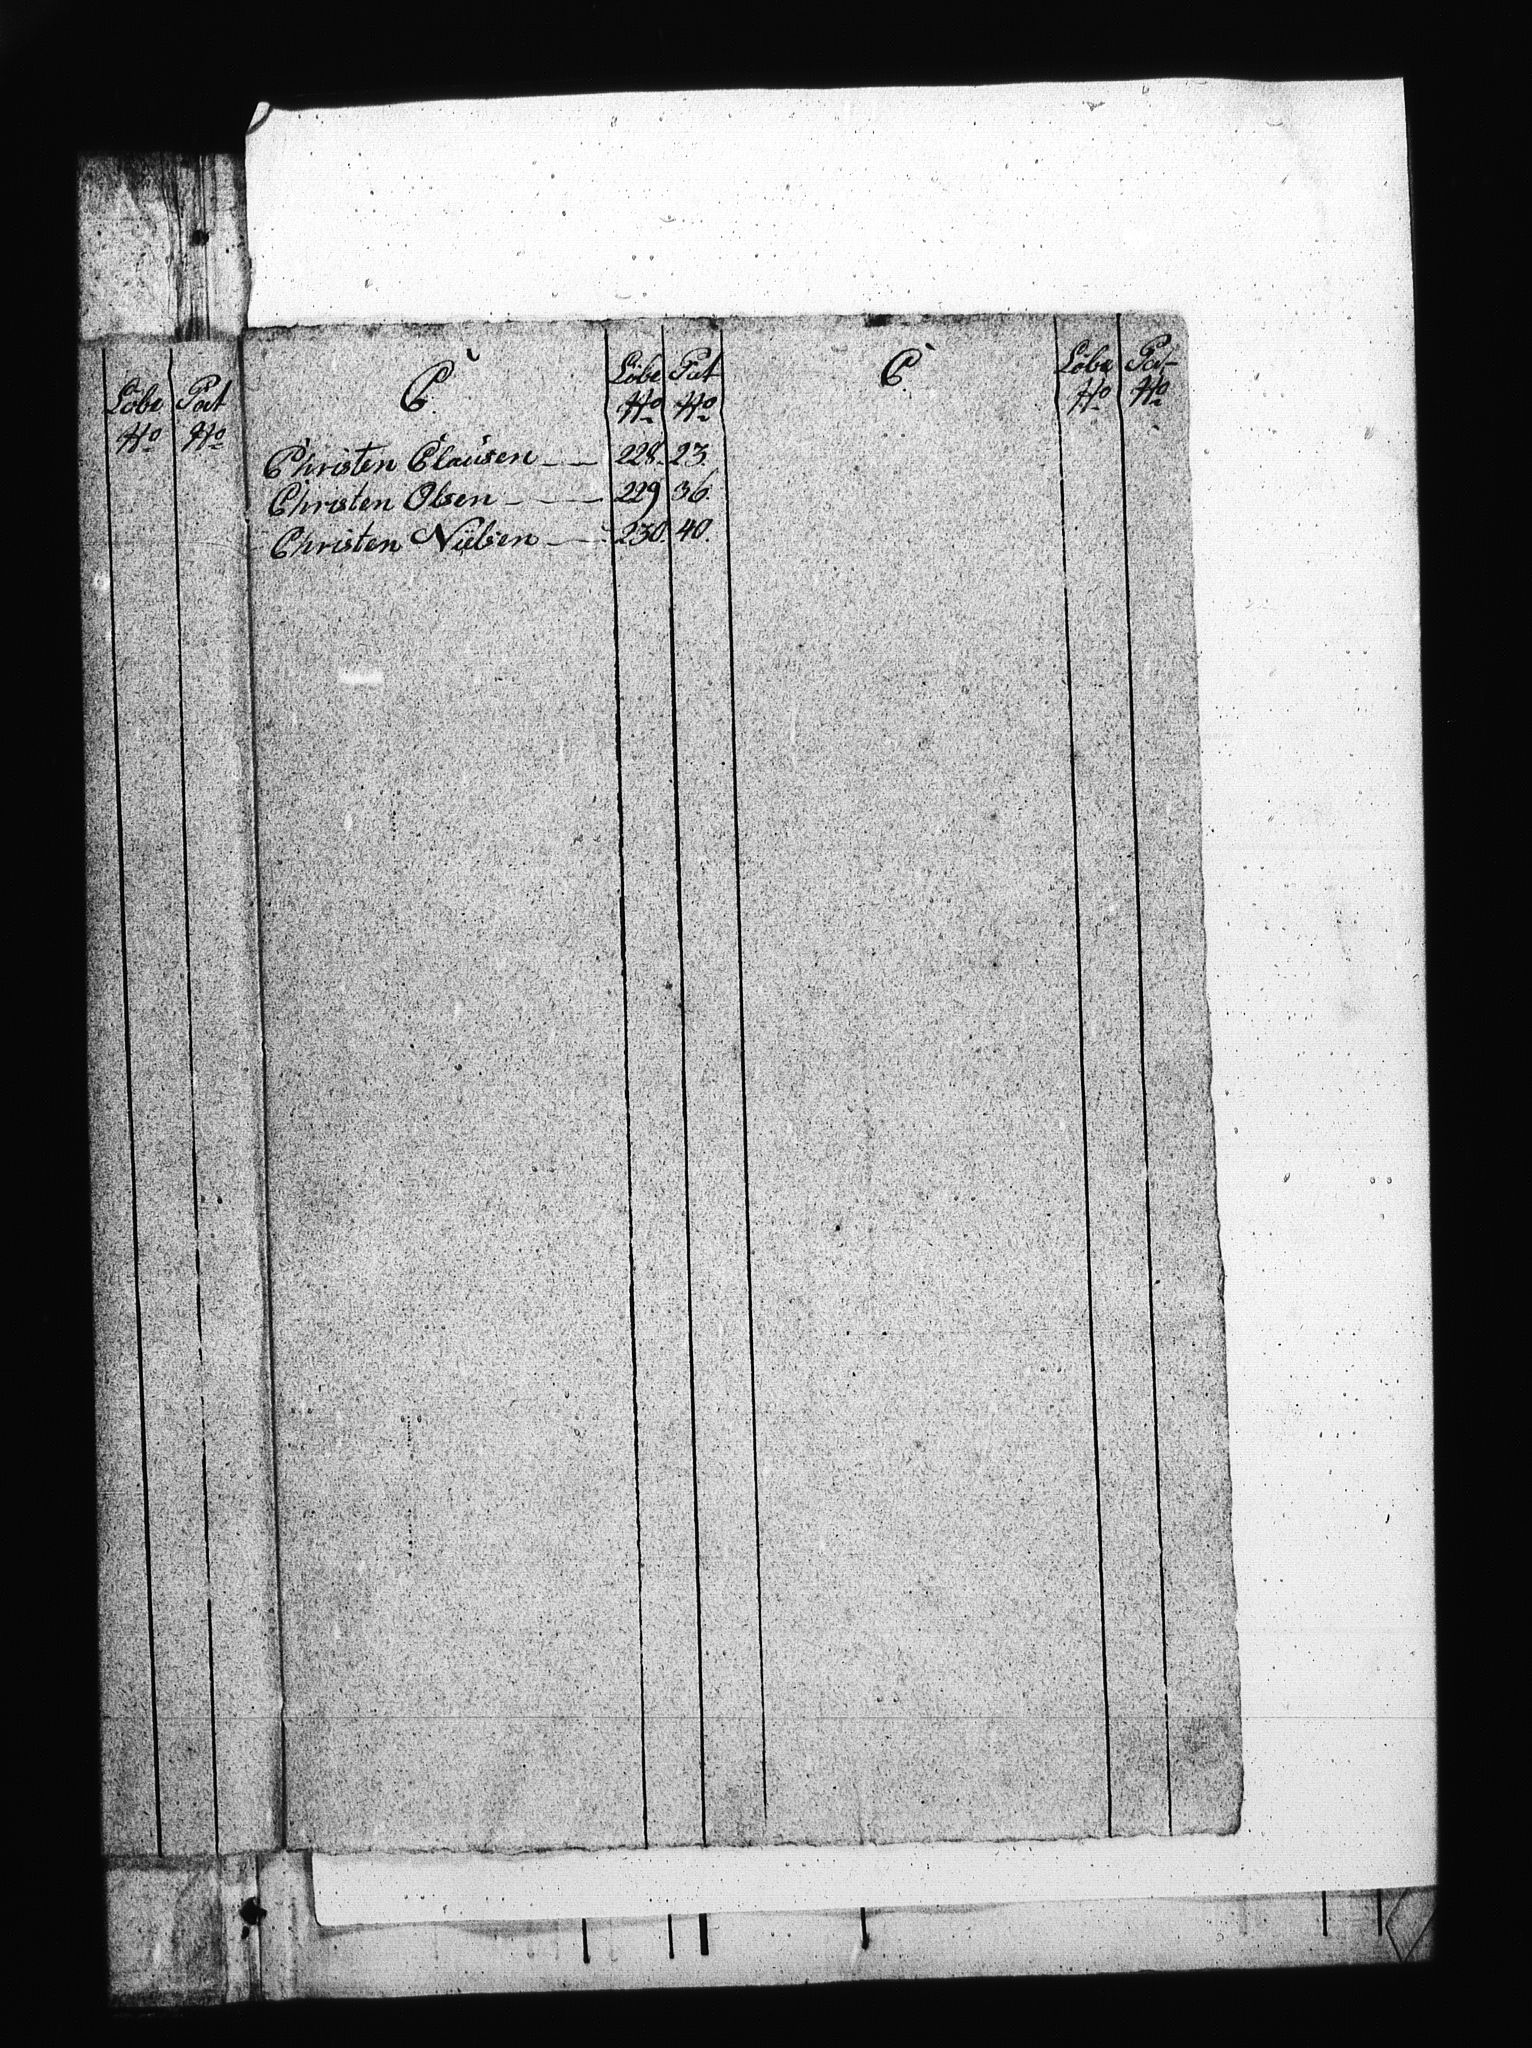 Löbe Pat
No No
C. Löbe Pat
No No
Christen Clausen 228. 23.
Christen Olsen 229 36.
Christen Nielsen 230. 40.
C. Löbe Pat
No No